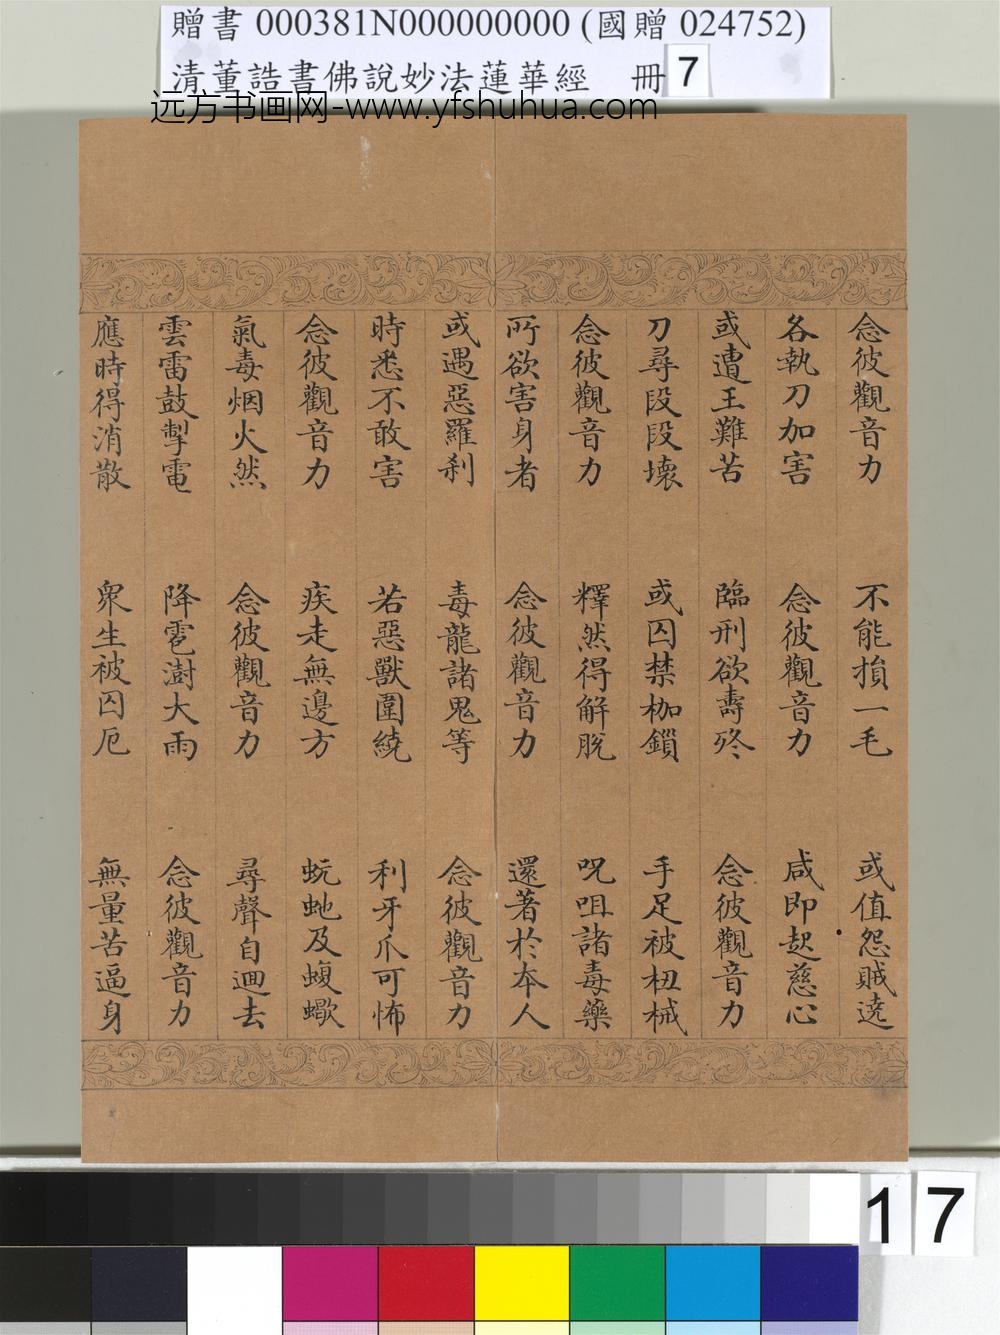 贈書 000381N000000000 (國贈 024752)
清董誥書佛說妙法蓮華經 冊 7
远方书画网-www.yfshuhua.com
念彼觀音力 不能損一毛 或值怨賊遶
各執刀加害 念彼觀音力 咸即起慈心
或遭王難苦 臨刑欲壽終 念彼觀音力
刀尋段段壞 或囚禁枷鎖 手足被杻械
念彼觀音力 釋然得解脫 呪咀諸毒藥
所欲害身者 念彼觀音力 還著於本人
或遇惡羅刹 毒龍諸鬼等 念彼觀音力
時悉不敢害 若惡獸圍繞 利牙爪可怖
念彼觀音力 疾走無邊方 蚖虵及蝮蠍
氣毒烟火然 念彼觀音力 尋聲自迴去
雲雷鼓掣電 降雹澍大雨 念彼觀音力
應時得消散 衆生被囚厄 無量苦逼身
17